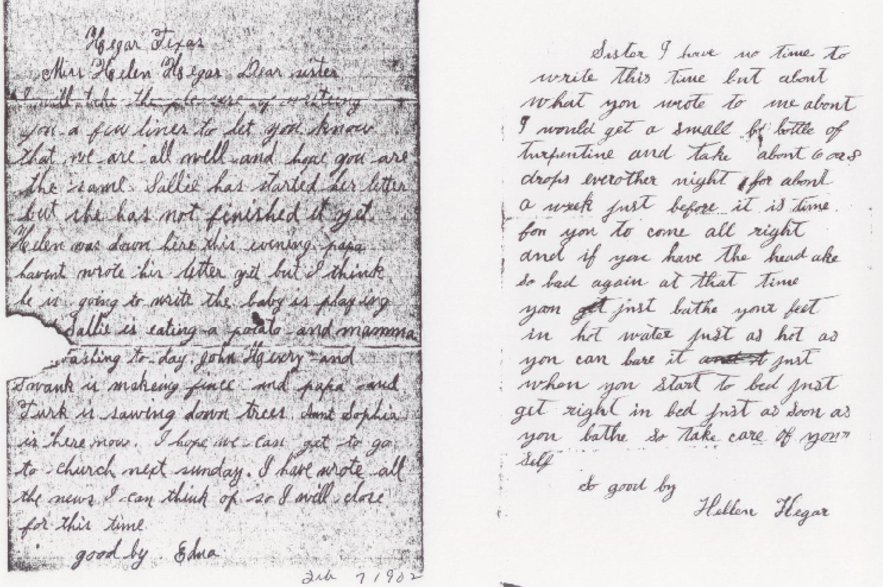 Hegar Texas
Miss Helen Hegar Dear sister
I will take the pleasure of writing
you a few lines to let you know
that we are all well and hope you are
the same. Sallie has started her letter
but she has not finished it yet.
Helen was down here this evening. papa
havent wrote his letter yet but I think
he is going to write the baby is playing
Sallie is eating a potato and mamma
washing to day. John Henry and
Swank is makeing fence and papa and
Turk is sawing down trees. Aunt Sophia
is here now. I hope we can get to go
to church next sunday. I have wrote all
the news I can think of so I will close
for this time
good by Edna
Feb 7 1902
Sister I have no time to
write this time but about
what you wrote to me about
I would get a small bottle of
turpentine and take about 6 or 8
drops everother night for about
a week just before it is time
for you to come all right
and if you have the head ake
so bad again at that time
you just bathe your feet
in hot water just as hot as
you can bare it just
when you start to bed just
get right in bed just as soon as
you bathe so take care of your
self
so good by
Hellen Hegar